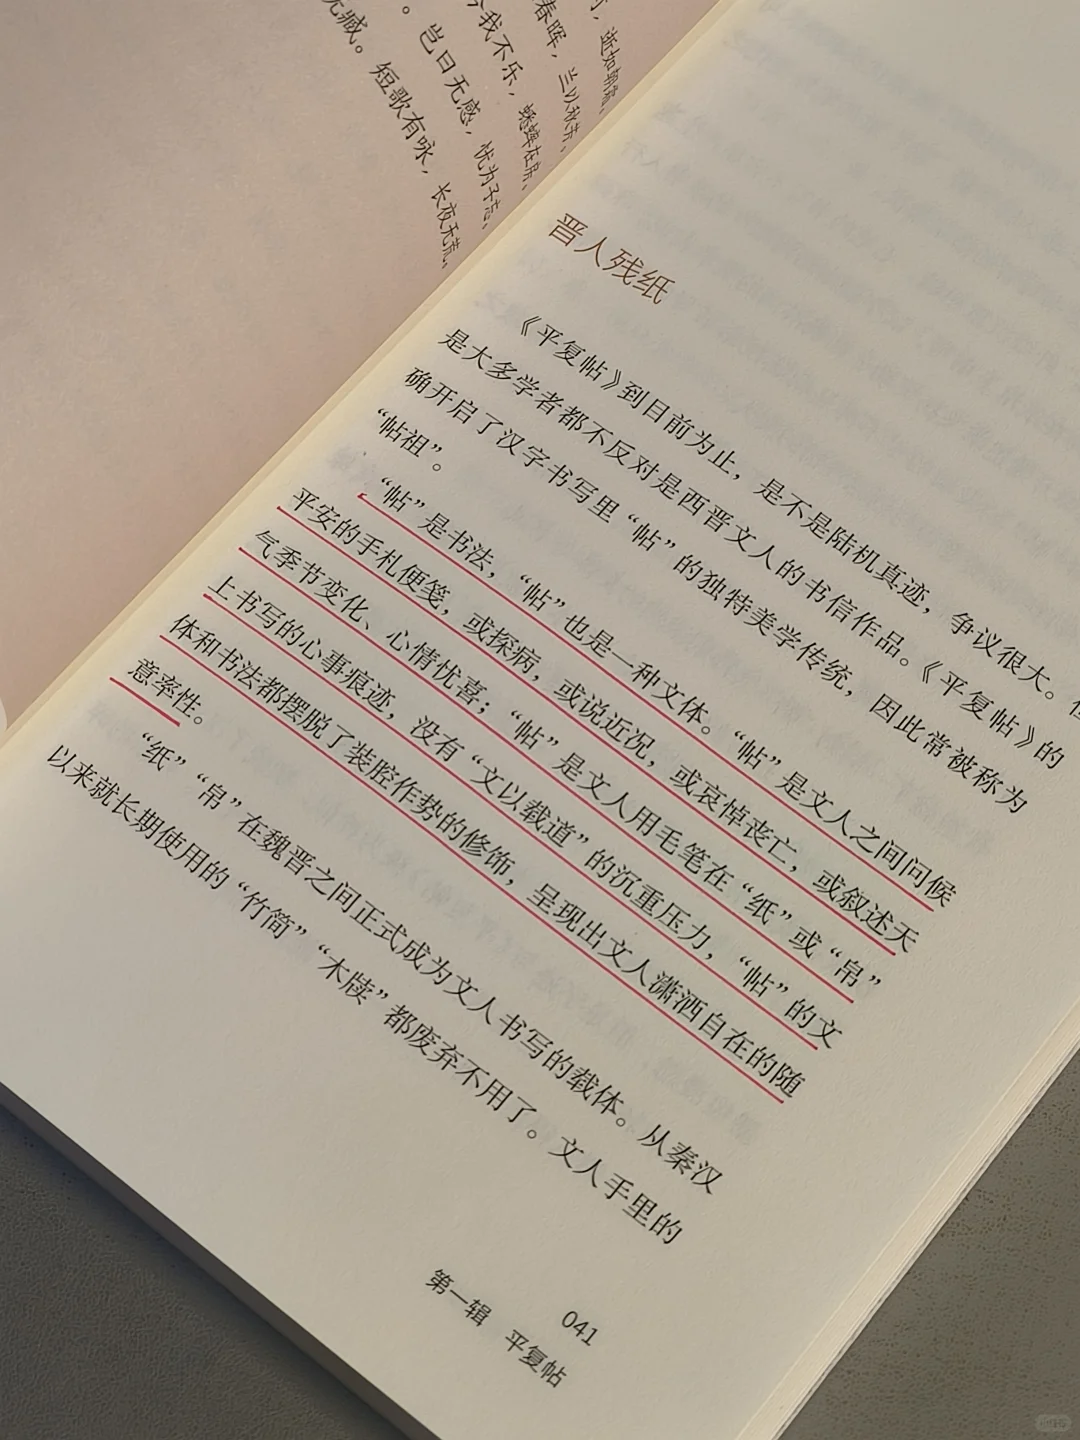 ，逝如朝露。
春晖，兰以秋芳。
今我不乐，蟋蟀在房。
。岂曰无感，忧为子忘。
无臧。短歌有咏，长夜无荒。
晋人残纸
《平复帖》到目前为止，是不是陆机真迹，争议很大。但
是大多学者都不反对是西晋文人的书信作品。《平复帖》的
确开启了汉字书写里“帖”的独特美学传统，因此常被称为
“帖祖”。
“帖”是书法，“帖”也是一种文体。“帖”是文人之间问候
平安的手札便笺，或探病，或说近况，或哀悼丧亡，或叙述天
气季节变化、心情忧喜；“帖”是文人用毛笔在“纸”或“帛”
上书写的心事痕迹，没有“文以载道”的沉重压力，“帖”的文
体和书法都摆脱了装腔作势的修饰，呈现出文人潇洒自在的随
意率性。
“纸”“帛”在魏晋之间正式成为文人书写的载体。从秦汉
以来就长期使用的“竹简”“木牍”都废弃不用了。文人手里的
第一辑 平复帖
041